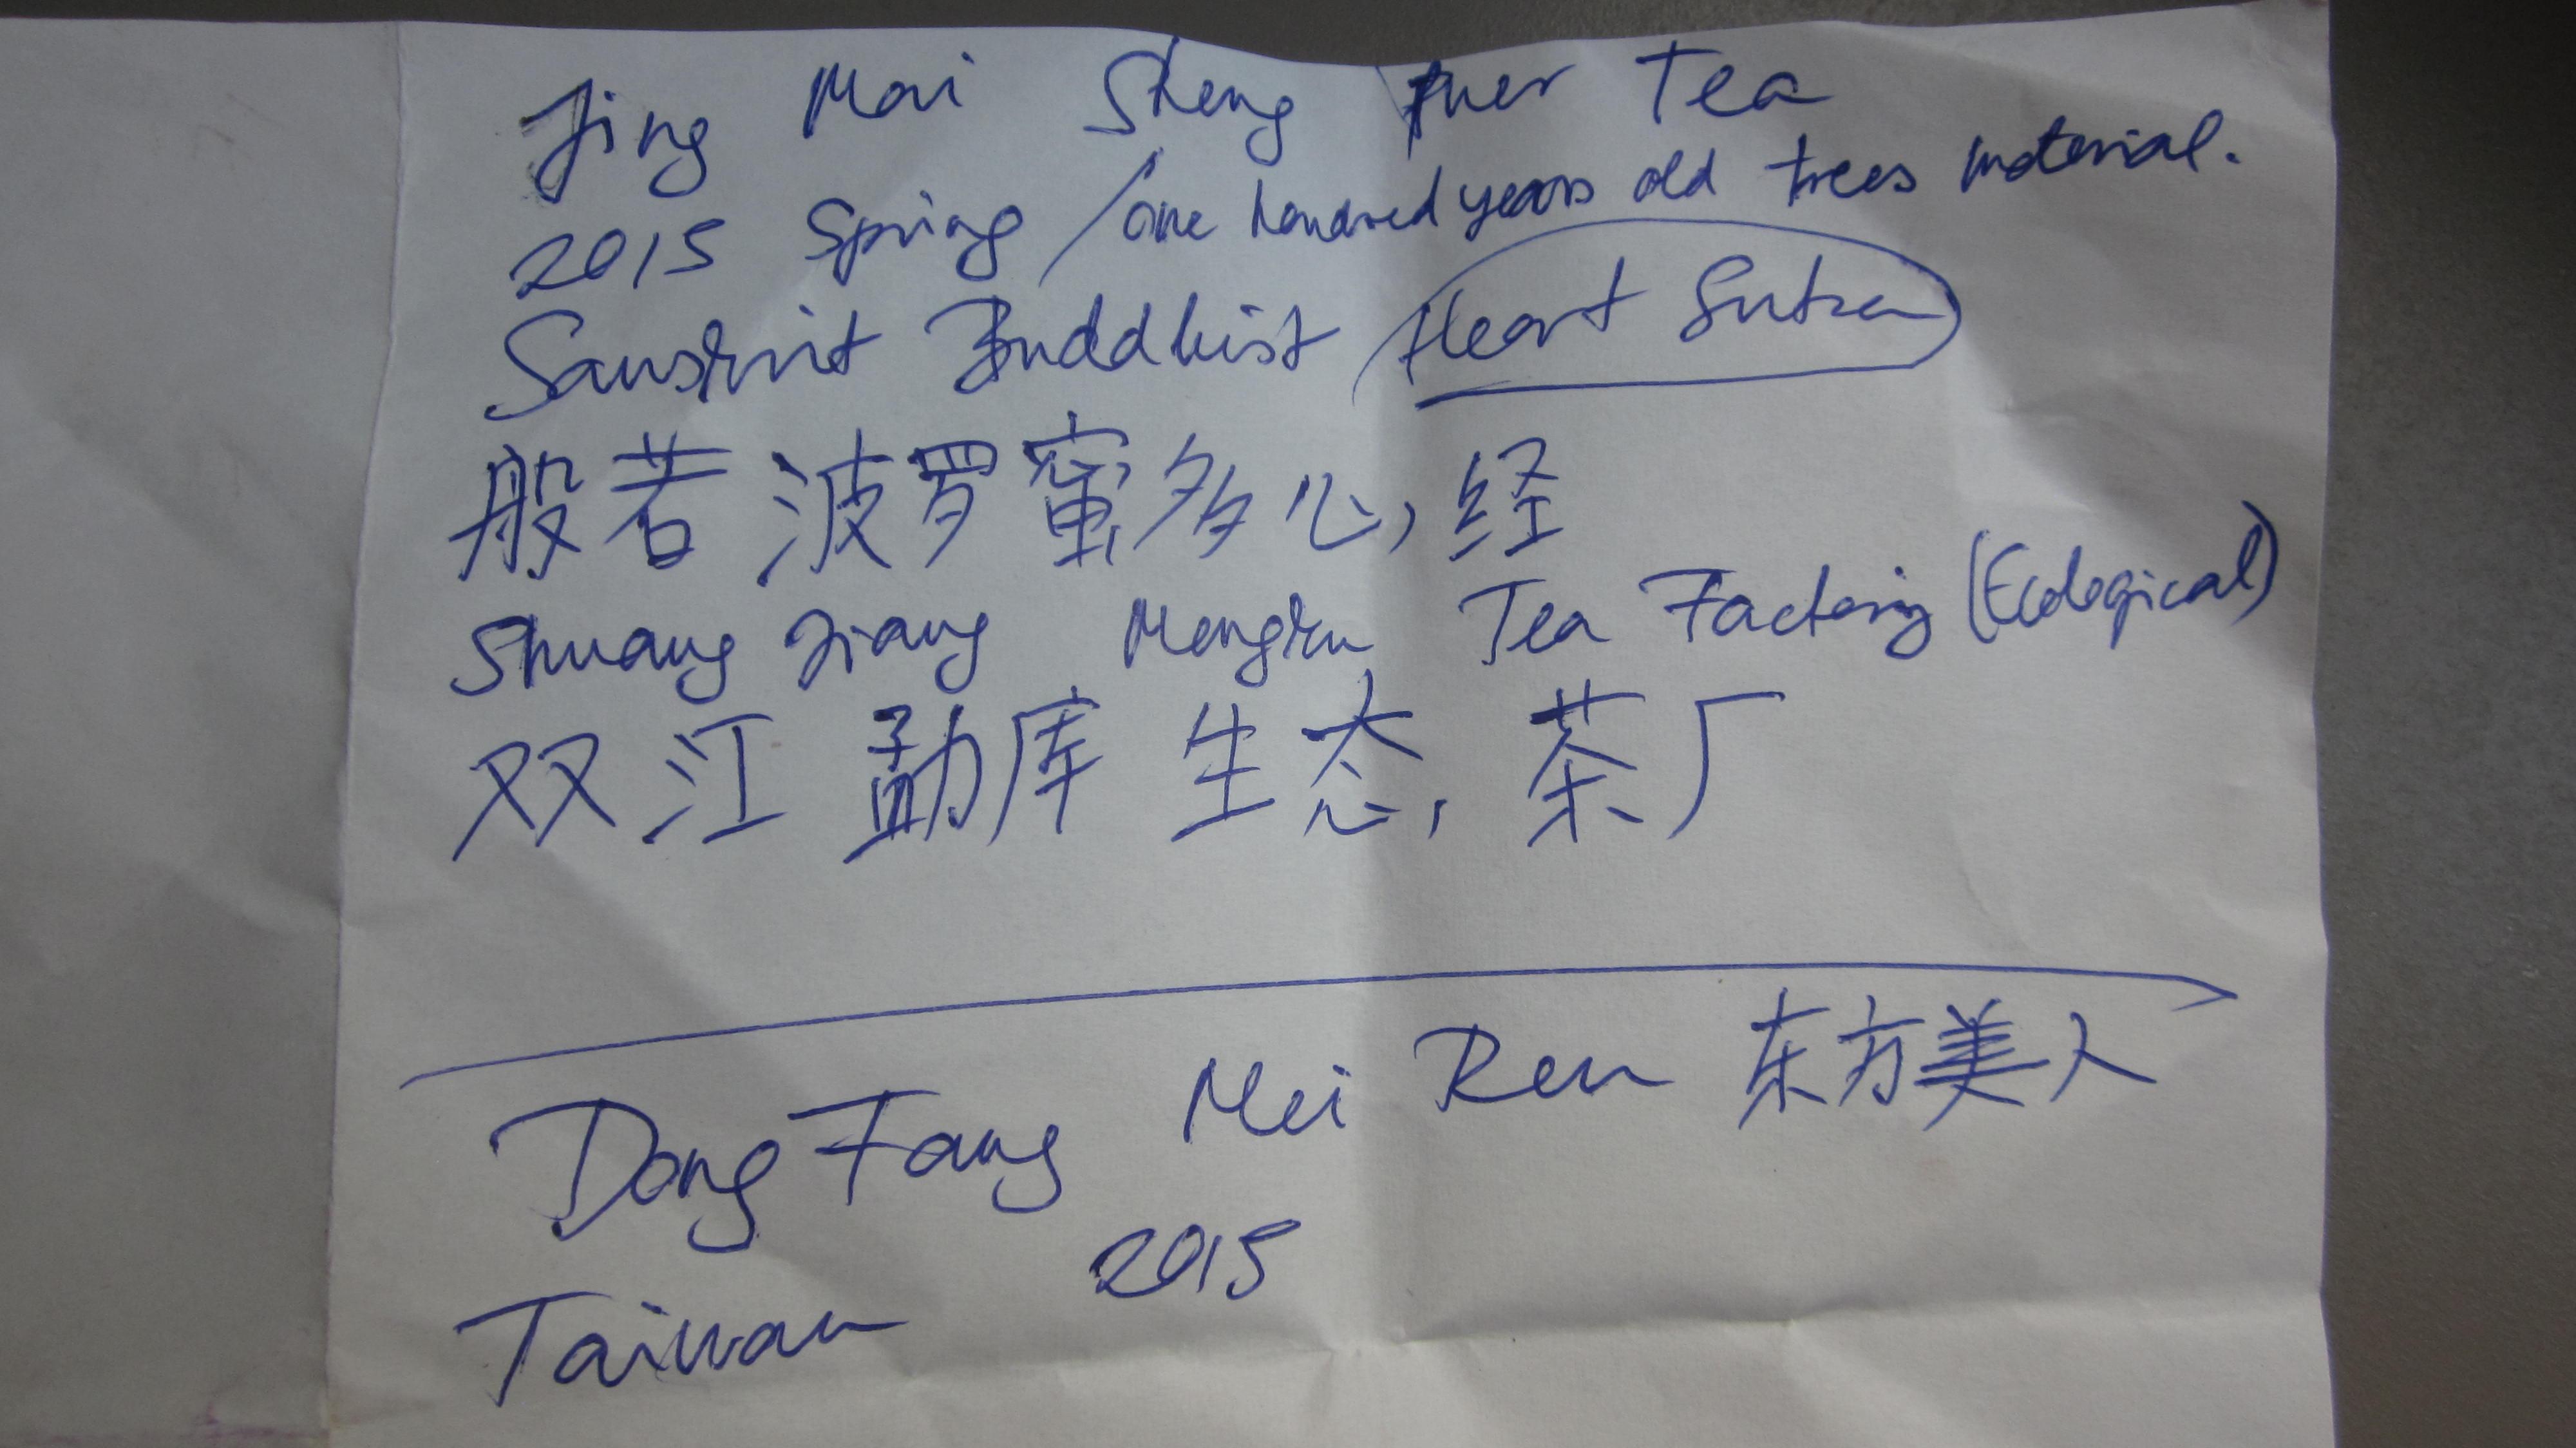 Jing Mai Sheng Puer Tea
2015 Spring / one hundred years old trees material.
Sanskrit Buddhist Heart Sutra
般若波罗蜜多心经
Shuang Jiang Mengku Tea Factory (Ecological)
双江勐库生态茶厂
Dong Fang Mei Ren 东方美人
Taiwan 2015